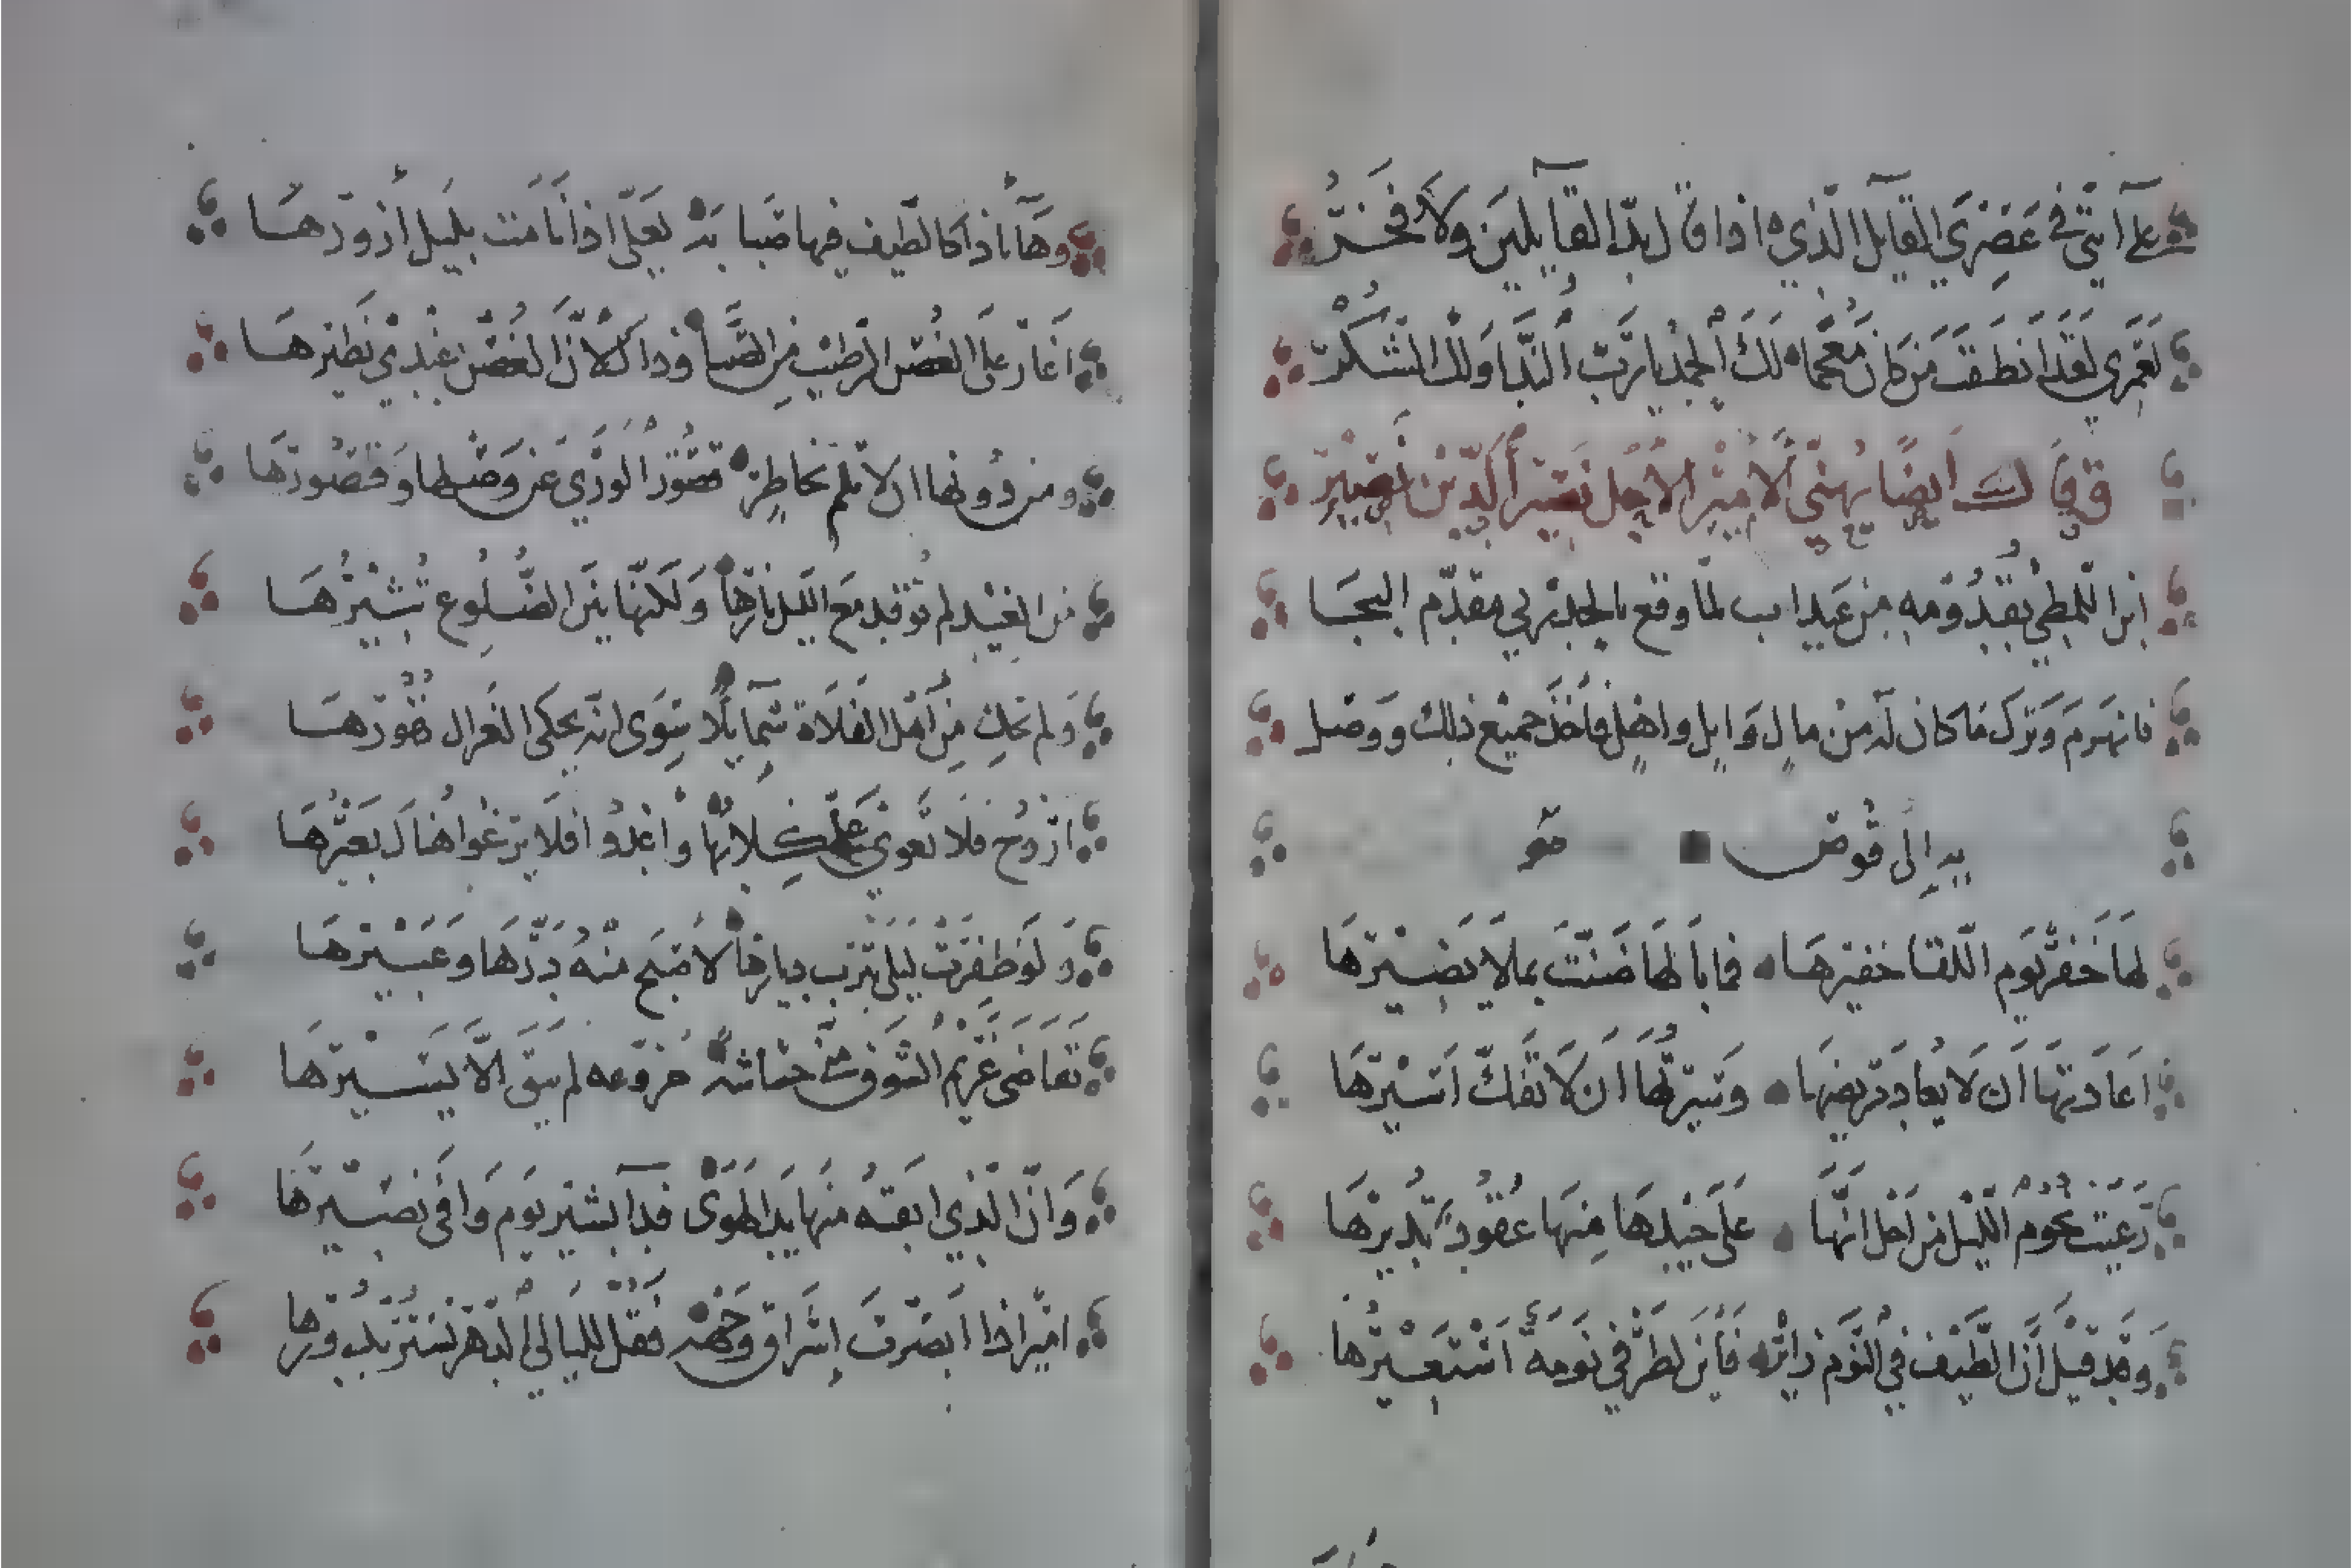 على أنني في عصري القايل الذي اذا قال بذ القايلين ولا فخر
لعمري لقد أنطقت من كان مفحما لك الحمد يا رب الندا ولك الشكر
وقال أيضا يهني الامير الاجل نصير الدين نصير
ابن اللمطي بقدومه من عيداب لما وقع بالحدربي مقدم البجا
فانهزم وترك ما كان له من مال وابل واهل فاخذ جميع ذلك ووصل
به إلى قوص
لها خفر يوم اللقا خفيرها فما بالها ضنت بما لا يضيرها
اعادتها أن لا يعاد مريضها وسيرتها أن لا تفك اسيرها
رعيت نجوم الليل من اجل انها على جيدها منها عقود تديرها
وقد قيل أن الطيف في النوم زائر فأين لطرفي نومة استعيرها
وها أنا ذا كالطيف فيها صبابة لعلي اذا نامت بليل أزورها
اغار على الغصن الرطيب من الصبا وذاك لأن الغصن عندي نظيرها
ومن دونها ان لا تلم بخاطر قصور الورى عن وصلها وقصورها
من الغيد لم توقد مع الليل نارها ولكنها بين الضلوع تثيرها
ولم تحك من أهل الفلاة شمايلا سوى انه يحكي الغزال نفورها
اروح فلا تعوي علي كلابها وأغدو افلا يرغوا هناك بعيرها
ولو ظفرت ليلى بترب ديارها لاصبح منه درها وعبيرها
تقاضى غريم الشوق مني حشاشة مروعه لم يبق الا يسيرها
وان الذي ابقته منها يد الهوى فدا بشير يوم وافى نصيرها
امير اذا أبصرت إشراق وجهه فقل لليالي الدهر تستر بدورها